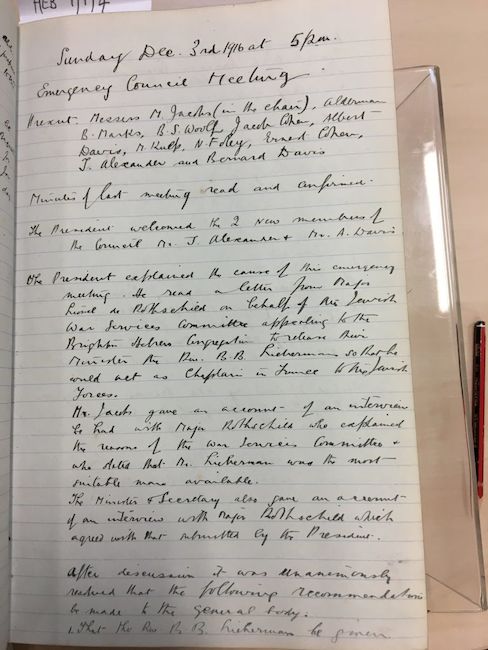 HEB 1/1/4
Sunday Dec. 3rd 1916 at 5 p.m.
Emergency Council Meeting.
Present. Messers M. Jacobs (in the chair), Alderman
B. Marks, B. S. Woolf, Jacob Cohen, Albert
Davis, M. Kulp, N. Foley, Ernest Cohen,
J. Alexander and Bernard Davis
Minutes of last meeting read and confirmed.
The President welcomed the 2 new members of
the Council Mr. J. Alexander & Mr. A. Davis
The President explained the cause of this emergency
meeting. He read a letter from Major
Lionel de Rothschild on behalf of the Jewish
War Services Committee appealing to the
Brighton Hebrew Congregation to release their
Minister the Rev. B. B. Lieberman so that he
would act as Chaplain in France to the Jewish
Forces.
Mr. Jacobs gave an account of an interview
he had with Major Rothschild who explained
the reasons of the War Services Committee &
who stated that Mr. Lieberman was the most
suitable man available.
The Minister & Secretary also gave an account
of an interview with Major Rothschild which
agreed with that submitted by the President.
After discussion it was unanimously
resolved that the following recommendations
be made to the general body.
1. That the Rev B. B. Lieberman be given